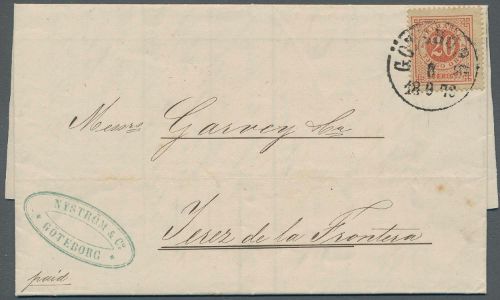 GÖTEBORG
20
18 9 73
Messrs Garvey & Co
Jerez de la Frontera
NYSTRÖM & Co
GÖTEBORG
paid